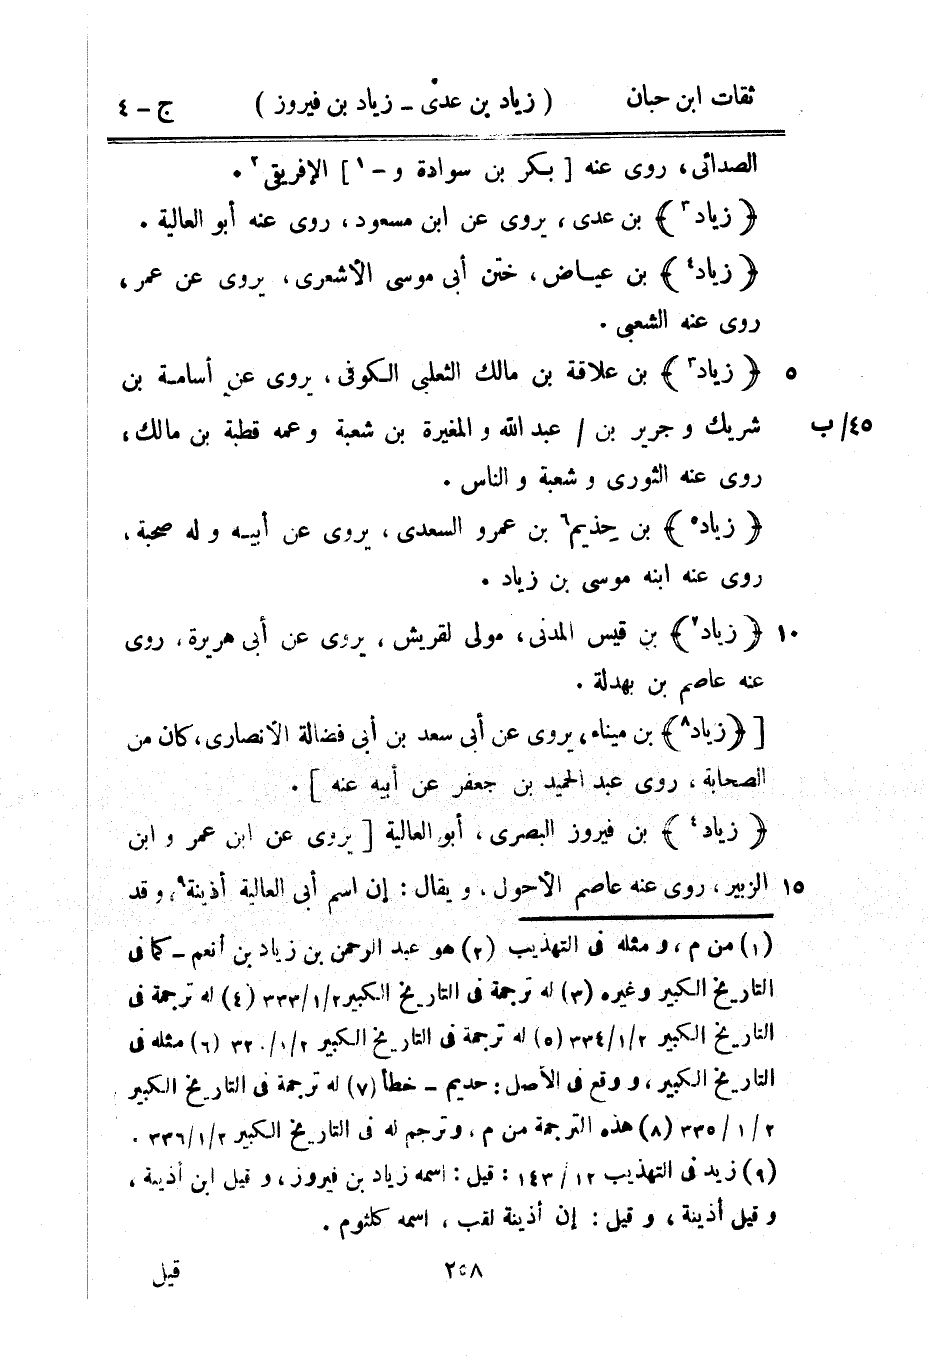 ثقات ابن حبان ( زياد بن عدى – زياد بن فيروز ) ج – ٤
الصدائى، روى عنه [ بكر بن سوادة و – ١ ] الإفريقى ٢ .
﴿ زياد ٣ ﴾ بن عدى، يروى عن ابن مسعود، روى عنه أبو العالية .
﴿ زياد ٤ ﴾ بن عياض، ختن أبى موسى الأشعرى، يروى عن عمر،
روى عنه الشعبى .
٥ ﴿ زياد ٣ ﴾ بن علاقة بن مالك الثعلبى الكوفى، يروى عن أسامة بن
٤٥/ ب شريك و جرير بن / عبد الله و المغيرة بن شعبة و عمه قطبة بن مالك،
روى عنه الثورى و شعبة و الناس .
﴿ زياد ٥ ﴾ بن حذيم ٦ بن عمرو السعدى، يروى عن أبيه و له صحبة،
روى عنه ابنه موسى بن زياد .
١٠ ﴿ زياد ٧ ﴾ بن قيس المدنى، مولى لقريش، يروى عن أبى هريرة، روى
عنه عاصم بن بهدلة .
[ ﴿ زياد ٨ ﴾ بن ميناء، يروى عن أبى سعد بن أبى فضالة الأنصارى، كان من
الصحابة، روى عبد الحميد بن جعفر عن أبيه عنه ] .
﴿ زياد ٤ ﴾ بن فيروز البصرى، أبو العالية [ يروى عن ابن عمر و ابن
١٥ الزبير، روى عنه عاصم الأحول، و يقال : إن اسم أبى العالية أذينة ٩، و قد
(١) من م، و مثله فى التهذيب (٢) هو عبد الرحمن بن زياد بن أنعم – كما فى
التاريخ الكبير وغيره (٣) له ترجمة فى التاريخ الكبير ٢/١/٣٣٣ (٤) له ترجمة فى
التاريخ الكبير ٢/١/٣٣٤ (٥) له ترجمة فى التاريخ الكبير ٢/١/٣٢٠ (٦) مثله فى
التاريخ الكبير، و وقع فى الأصل : حديم – خطأ (٧) له ترجمة فى التاريخ الكبير
٢/١/٣٣٥ (٨) هذه الترجمة من م، و ترجم له فى التاريخ الكبير ٢/١/٣٣٦ .
(٩) زيد فى التهذيب ١٢/١٤٣ : قيل : اسمه زياد بن فيروز، و قيل ابن أذينة،
و قيل أذينة، و قيل : إن أذينة لقب، اسمه كلثوم .
٢٥٨ قيل